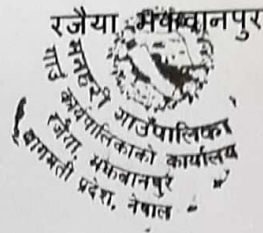 रजैया, मकवानपुर
मनहरी गाउँपालिका
गाउँ कार्यपालिकाको कार्यालय
रजैया, मकवानपुर
बागमती प्रदेश, नेपाल